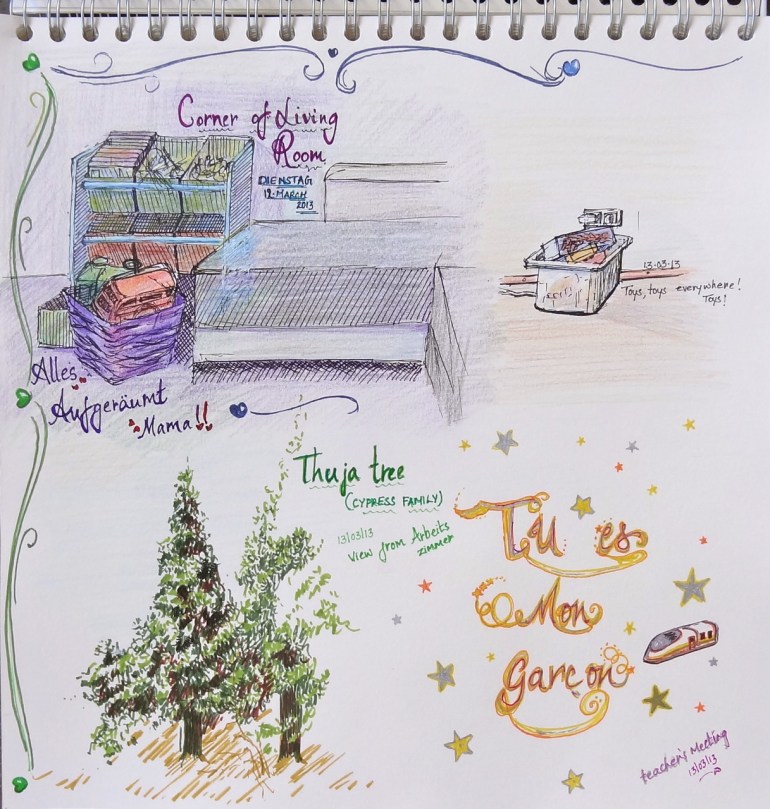 Corner of Living
Room
DIENSTAG
12-MARCH
2013
13-03-13
Toys, toys everywhere!
Toys!
Alles
Aufgeräumt
Mama!!
Thuja tree
(CYPRESS FAMILY)
13/03/13
View from Arbeits
zimmer
Tu es
Mon
Garçon
teacher's Meeting
13/03/13